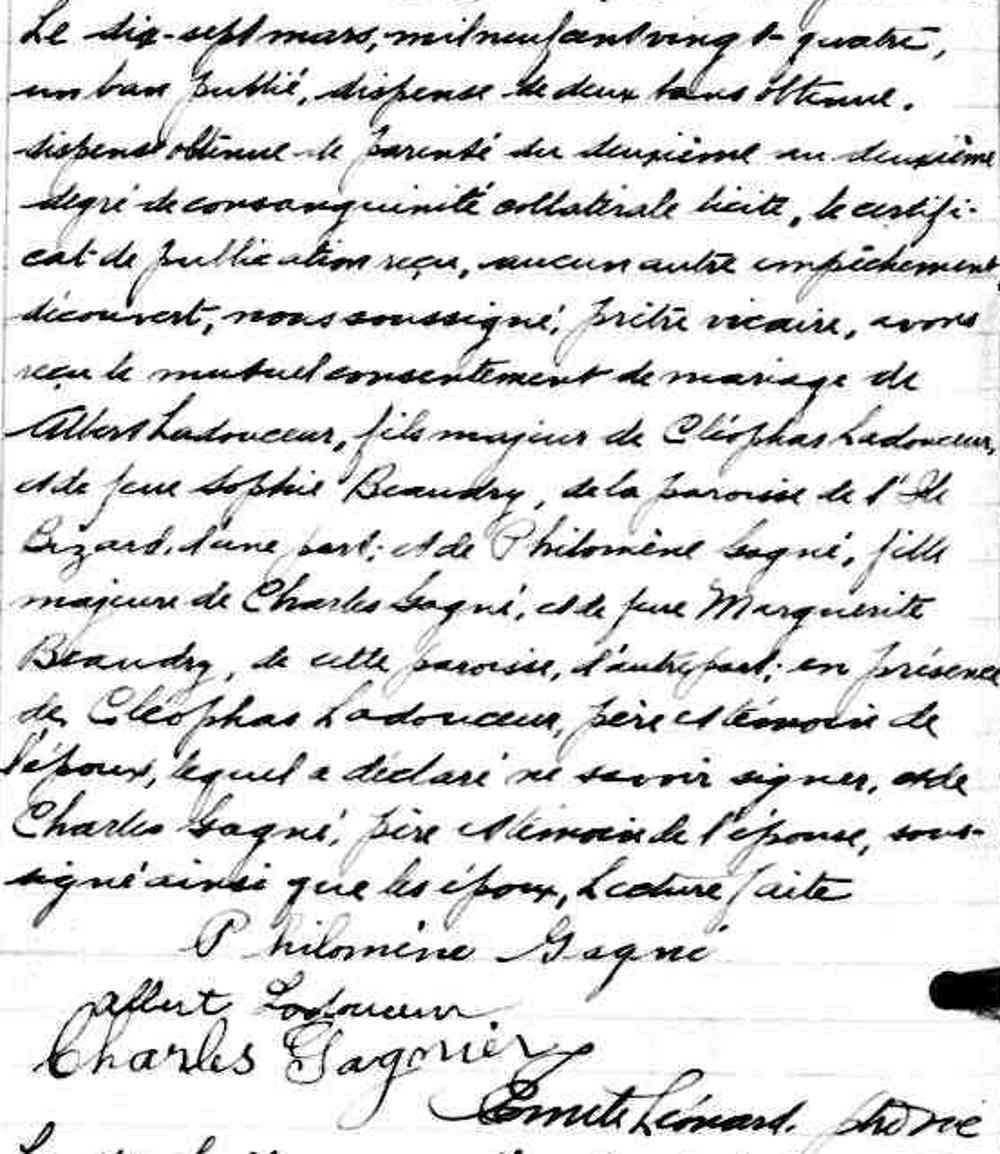 Le dix-sept mars, mil neuf cent vingt-quatre,
un ban publié, dispense de deux bans obtenue.
dispense obtenue de parenté du deuxième au deuxième
degré de consanguinité collatérale licite, le certifi-
cat de publication reçu, aucun autre empêchement
découvert, nous soussigné, prêtre vicaire, avons
reçu le mutuel consentement de mariage de
Albert Ladouceur, fils majeur de Cléophas Ladouceur,
et de feue Sophie Beaudry, de la paroisse de l'Ile
Bizard, d'une part; et de Philomène Gagné, fille
majeure de Charles Gagné, et de feue Marguerite
Beaudry, de cette paroisse, d'autre part; en présence
de Cléophas Ladouceur, père et témoin de
l'époux, lequel a déclaré ne savoir signer, et de
Charles Gagné, père et témoin de l'épouse, sous-
signé ainsi que les époux, Lecture faite
Philomène Gagné
Albert Ladouceur
Charles Gagnier
Léonard.